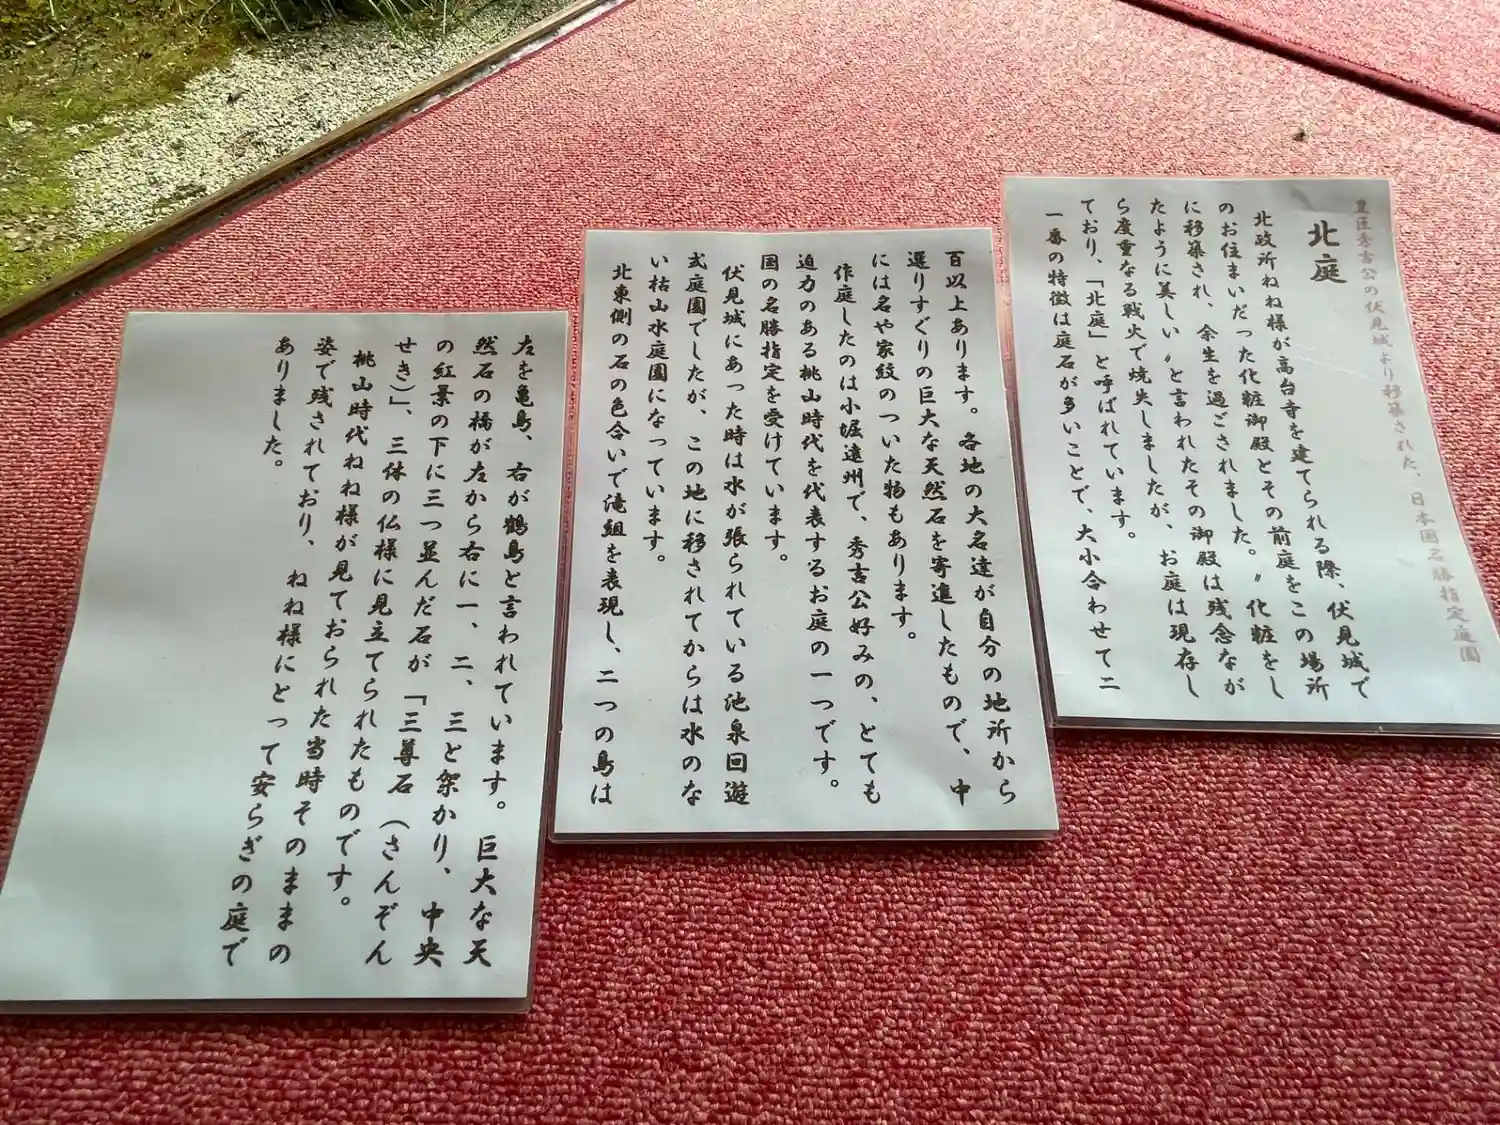 豊臣秀吉公の伏見城より移築された、日本国名勝指定庭園
北庭
北政所ねね様が高台寺を建てられる際、伏見城で
のお住まいだった化粧御殿とその前庭をこの場所
に移築され、余生を過ごされました。〝化粧をし
たように美しい〟と言われたその御殿は残念なが
ら度重なる戦火で焼失しましたが、お庭は現存し
ており、「北庭」と呼ばれています。
一番の特徴は庭石が多いことで、大小合わせて二
百以上あります。各地の大名達が自分の地所から
選りすぐりの巨大な天然石を寄進したもので、中
には名や家紋のついた物もあります。
作庭したのは小堀遠州で、秀吉公好みの、とても
迫力のある桃山時代を代表するお庭の一つです。
国の名勝指定を受けています。
伏見城にあった時は水が張られている池泉回遊
式庭園でしたが、この地に移されてからは水のな
い枯山水庭園になっています。
北東側の石の色合いで滝組を表現し、二つの島は
左を亀島、右が鶴島と言われています。巨大な天
然石の橋が左から右に一、二、三と架かり、中央
の紅葉の下に三つ並んだ石が「三尊石（さんぞん
せき）」、三体の仏様に見立てられたものです。
桃山時代ねね様が見ておられた当時そのままの
姿で残されており、ねね様にとって安らぎの庭で
ありました。